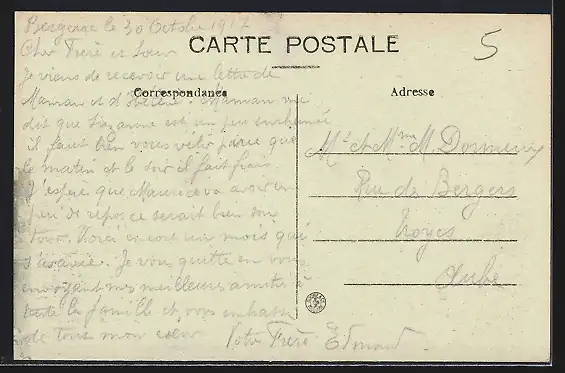 Bergerac le 30 Octobre 1917
CARTE POSTALE
5
Cher Frère et Soeur
Je viens de recevoir une lettre de
Correspondance
Adresse
Maman et d'Hélène. Maman me
dit que Suzanne est un peu enrhumé
il faut bien vous vêtir parce que
le matin et le soir il fait frais
J'espère que Maurice va avoir un
peu de repos ce serait bien son
tour. Voici encore un mois qui
s'avance. Je vous quitte en vous
envoyant mes meilleurs amitiés à
toute la famille et vous embrasse
de tous mon coeur
Votre Frère Edmond
Mr et Mme M.
Rue de Bergers
Troyes
Aube